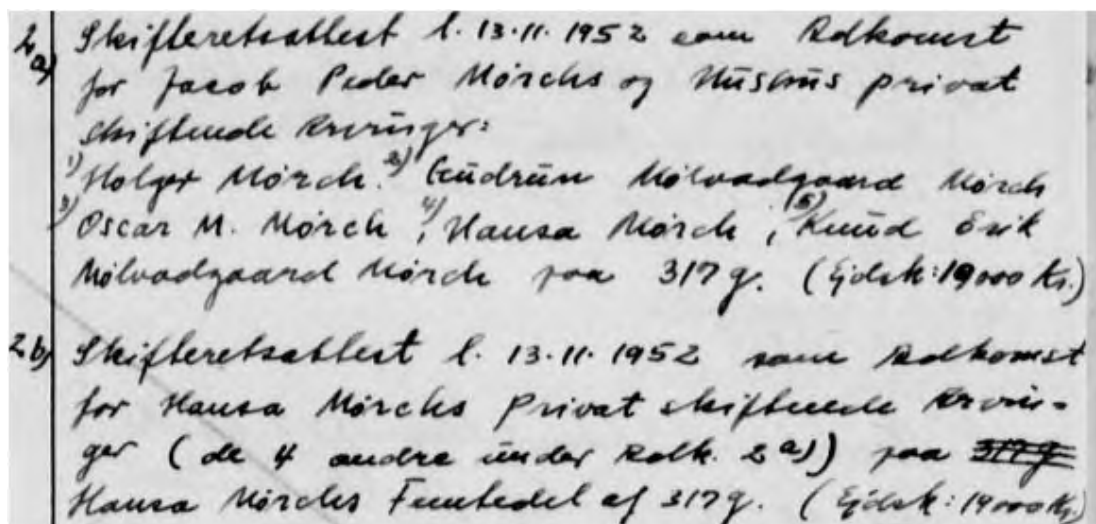 2a) Skifteretsattest l. 13.11.1952 som Adkomst
for Jacob Peder Mörchs og Hustrus privat
skiftende Arvinger:
1) Holger Mörch. 2) Gudrun Mölvadgaard Mörch
3) Oscar M. Mörch, 4) Hansa Mörch, (5) Knud Erik
Mölvadgaard Mörch paa 317g. (Ejdsk: 19000 Kr.)
2b) Skifteretsattest l. 13.11.1952 som Adkomst
for Hansa Mörchs Privat skiftende Arvin-
ger (de 4 andre under Adk. 2a)) paa 317g
Hansa Mörchs Femtedel af 317g. (Ejdsk: 19000 Kr.)